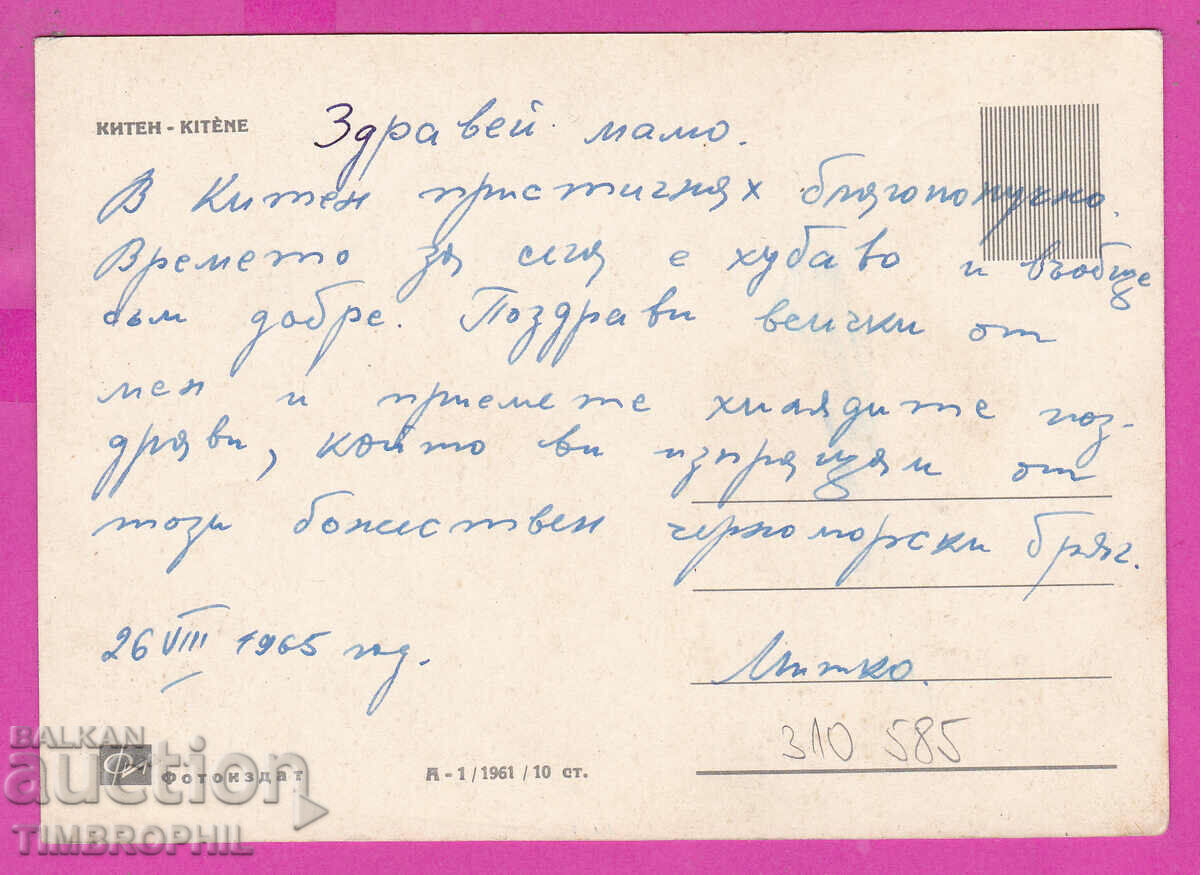 КИТЕН - KITÈNE
Здравей мамо.
В Китен пристигнах благополучно.
Времето за сега е хубаво и въобще
съм добре. Поздрави всички от
мен и приемете хилядите поз-
драви, който ви изпращам от
този божествен черноморски бряг.
26 VIII 1965 год.
Митко.
310 585
BALKAN
auction
TIMBROPHIL
Фотоиздат
А - 1 / 1961 / 10 ст.